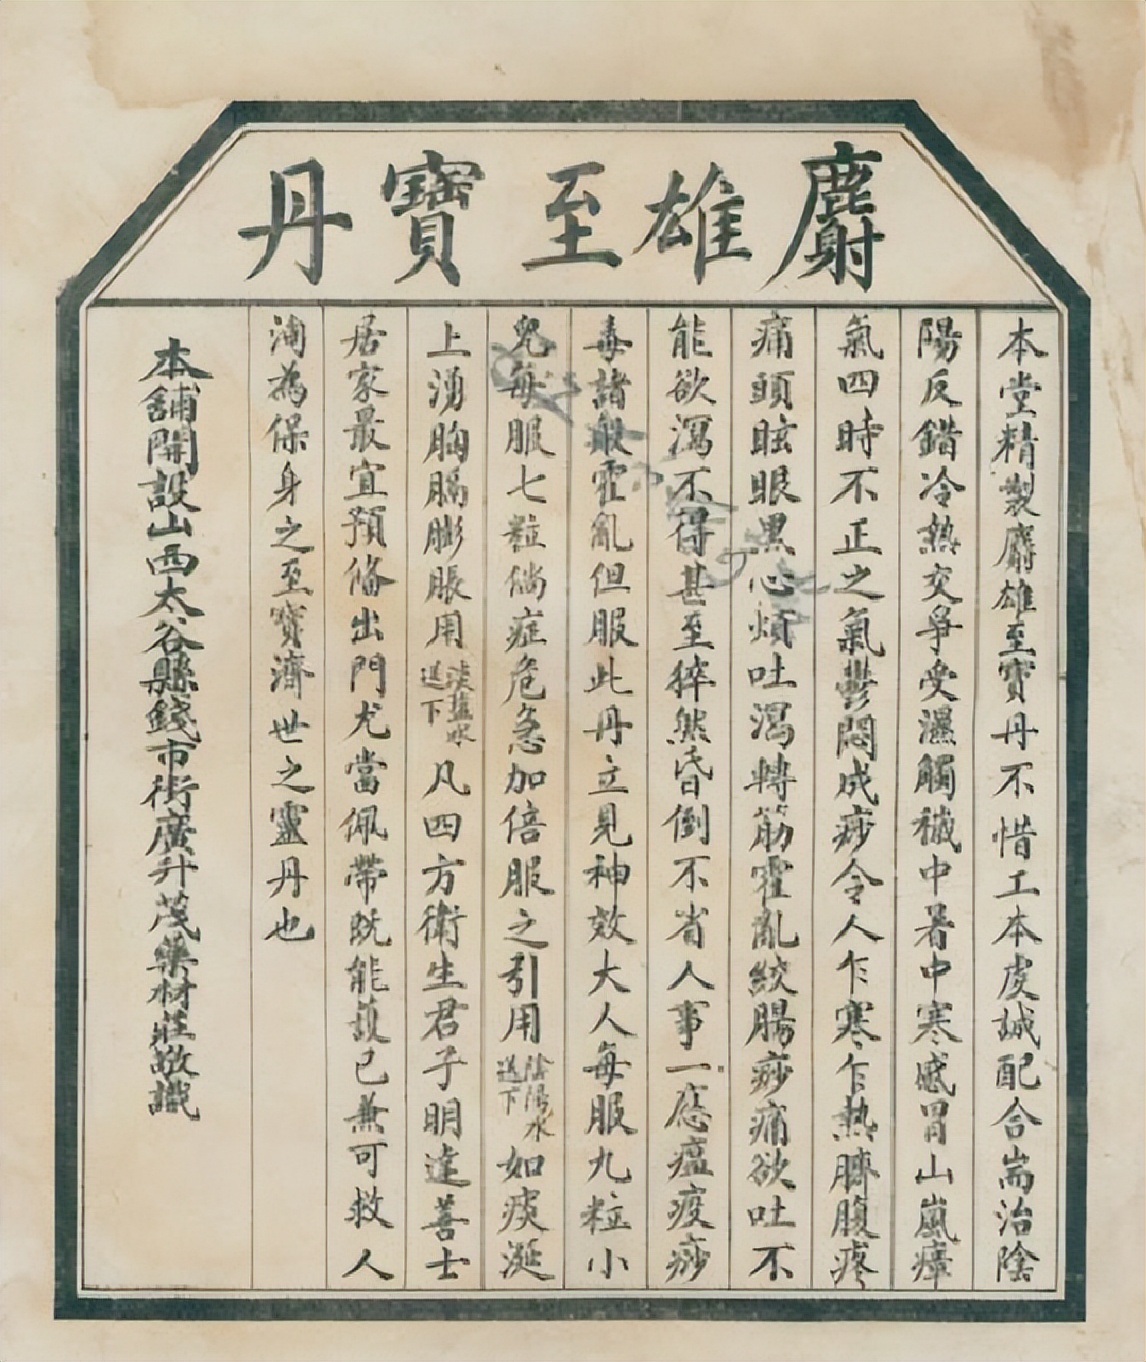 麝雄至寶丹
本堂精製麝雄至寶丹不惜工本虔誠配合耑治陰
陽反錯冷熱交爭受濕觸穢中暑中寒感冒山嵐瘴
氣四時不正之氣鬱悶成痧令人乍寒乍熱臍腹疼
痛頭眩眼黑心煩吐瀉轉筋霍亂絞腸痧痛欲吐不
能欲瀉不得甚至猝然昏倒不省人事一應瘟疫痧
毒諸般霍亂但服此丹立見神效大人每服九粒小
兒每服七粒倘症危急加倍服之引用陰陽水送下如痰涎
上湧胸膈膨脹用淡鹽水送下凡四方衛生君子明達善士
居家最宜預備出門尤當佩帶既能護己兼可救人
洵為保身之至寶濟世之靈丹也
本舖開設山西太谷縣錢市街廣升茂藥材莊敬識